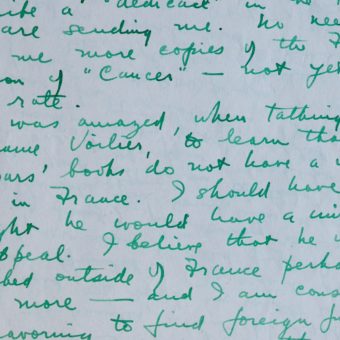 a "dedicace" in the
are sending me. No nee
me more copies of the F
on of "Cancer" — not yet
rate.
was amazed, when talking
ame Voilier, to learn tha
ars' books do not have a
in France. I should have
ght he would have a uni
ppeal. I believe that he
bed outside of France perha
more — and I am cons
eavoring to find foreign